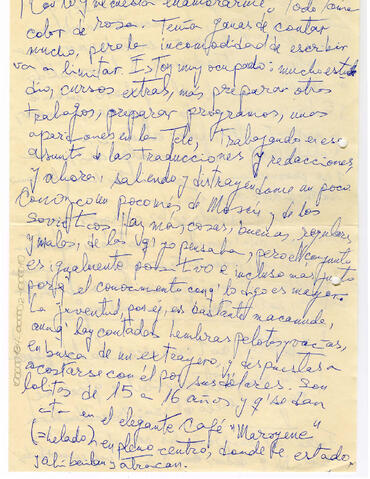 color de rosa. Tenía ganas de contar
mucho, pero la incomodidad de escribir
va a limitar. Estoy muy ocupado: mucho estu-
dio, cursos extras, más preparar otros
trabajos, preparar programas, unas
apariciones en la Tele, Trabajando en ese
asunto de las traducciones y redacciones,
y ahora, saliendo y distrayéndome un poco
Conozco un poco más de Moscú y de los
soviéticos. Hay más cosas, buenas, regulares
y malas, de las q' yo pensaba, pero el conjunto
es igualmente positivo e incluso más justo
porq' el conocimiento como lo digo es mayor.
La juventud, por ej, es bastante macanuda,
aunq' hay contadas hembras pelotos y vacías,
en busca de un extrajero, y dispuestas a
acostarse con él por sus dólares. Son
lolitas de 15 a 16 años y q' se dan
cita en el elegante Café "Maroyene"
(=helado) en pleno centro, donde he estado.
Jahi beilan y atracan.